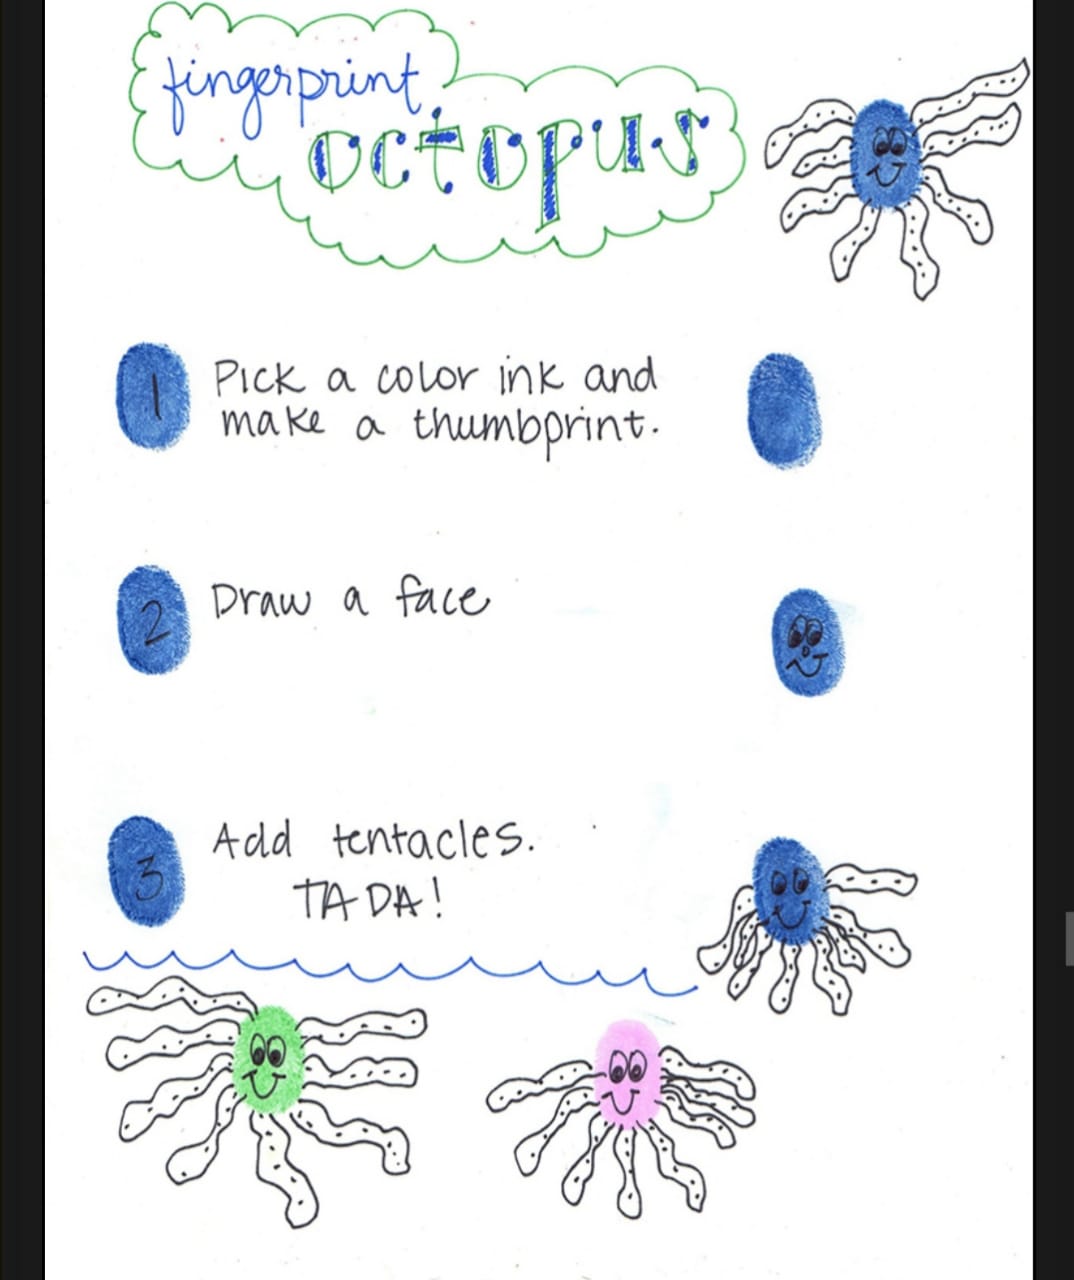 fingerprint
octopus
1 Pick a color ink and
make a thumbprint.
2 Draw a face
3 Add tentacles.
TADA!